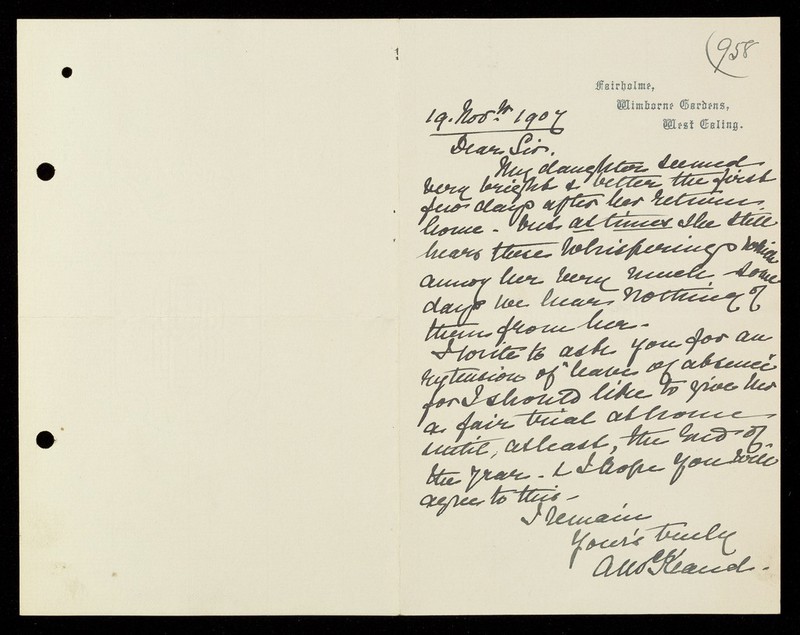 (958
Fairholme,
Wimborne Gardens,
West Ealing.
19. Novr. 1907
Dear Sir.
My daughter seemed
very bright & better the first
few days after her return
home - but at times she still
hears these whisperings which
annoy her very much some
days we hear nothing of
them from her.
I write to ask you for an
extension of "leave of absence
for I should like to give her
a fair trial at home
until, at least, the end of
the year - & I hope you will
agree to this -
I remain
Yours truly